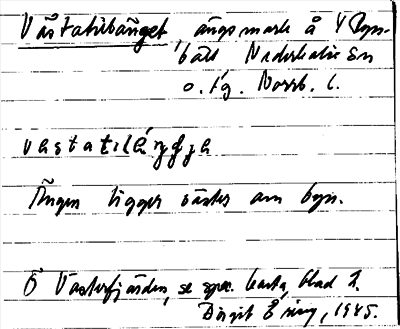 Västatillänget, ängsmark å Y Byn.
Nederkalix sn
o. tg. Norrb. l.
västatiläŋgət
Ängen ligger väster om byn.
Ö Västerfjärden, se spec. karta, blad 2.
Birgit Ering, 1945.